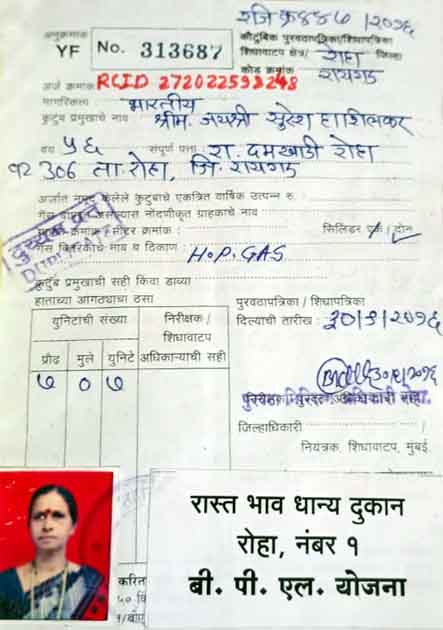 रजि क्र ४४७ /२०१६
अनुक्रमांक
YF No. 313687
कौटुंबिक पुरवठापत्रिका/शिधापत्रिका
शिधावाटप क्षेत्र/ रोहा जिल्हा
कोड क्रमांक रायगड
अर्ज क्रमांक RCID 272022592248
नागरिकत्व भारतीय
कुटुंब प्रमुखाचे नाव श्रीम. जयश्री सुरेश हाशिलकर
वय ५६ संपूर्ण पत्ता रा. दमखाडी रोहा
306 ता. रोहा, जि. रायगड
अर्जात नमूद केलेले कुटुंबाचे एकत्रित वार्षिक उत्पन्न रु.
गॅस असल्यास नोंदणीकृत ग्राहकाचे नाव
ग्राहक क्रमांक / मीटर क्रमांक : सिलिंडर एक / दोन
गॅस वितरकाचे नाव व ठिकाण : H.P. GAS
कुटुंब प्रमुखाची सही किंवा डाव्या
हाताच्या आंगठ्याचा ठसा
पुरवठापत्रिका / शिधापत्रिका
दिल्याची तारीख :
युनिटांची संख्या निरीक्षक /
शिधावाटप
प्रौढ मुले युनिटे अधिकाऱ्याची सही
७ ० ७
अधिकारी रोहा.
जिल्हाधिकारी
नियंत्रक शिधावाटप, मुंबई.
रास्त भाव धान्य दुकान
रोहा, नंबर १
बी. पी. एल. योजना
करित